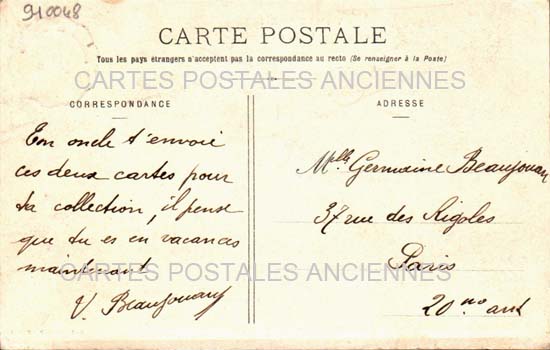 910048
CARTE POSTALE
Tous les pays étrangers n'acceptent pas la correspondance au recto (Se renseigner à la Poste)
CARTES POSTALES ANCIENNES
CORRESPONDANCE
Ton oncle t'envoie
ces deux cartes pour
ta collection, il pense
que tu es en vacances
maintenant
V. Beaujouan
ADRESSE
Melle Germaine Beaujouan
37 rue des Rigoles
Paris
20 me art
CARTES POSTALES ANCIENNES